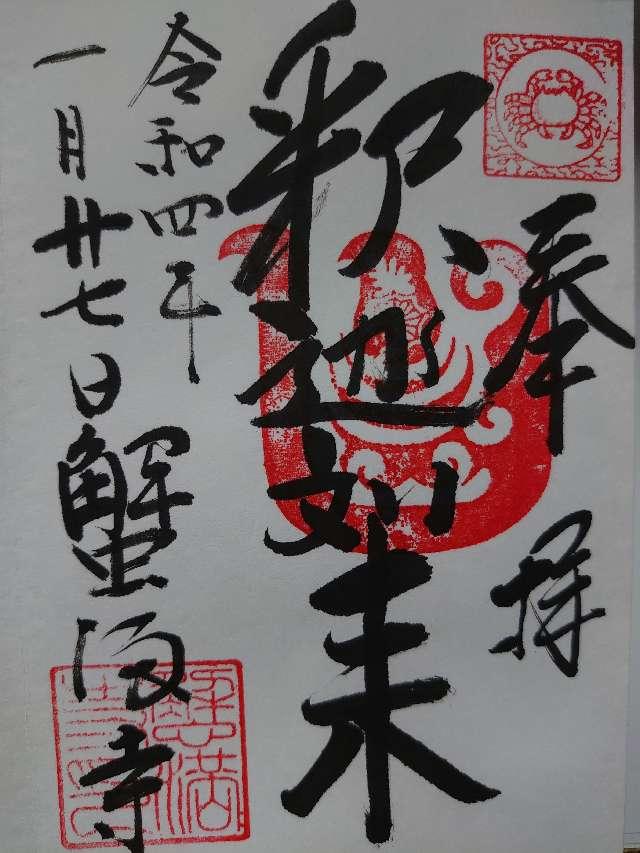 奉拝
釈迦如来
令和四年
一月廿七日
蟹満寺